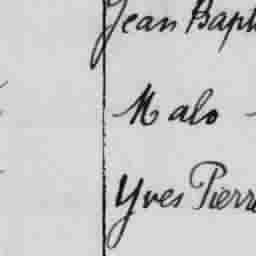 Jean Bapt
Malo -
Yves Pierre